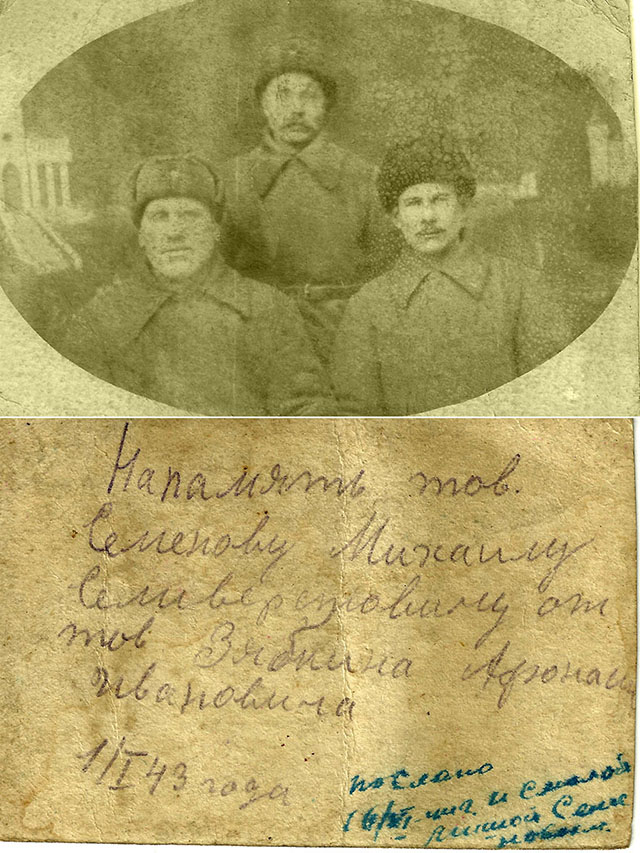 Напамять тов.
Семенову Михаилу
Селиверстовичу от
тов Зябкина Афонаси
Ивановича
1/I 43 года
послано
16/VI